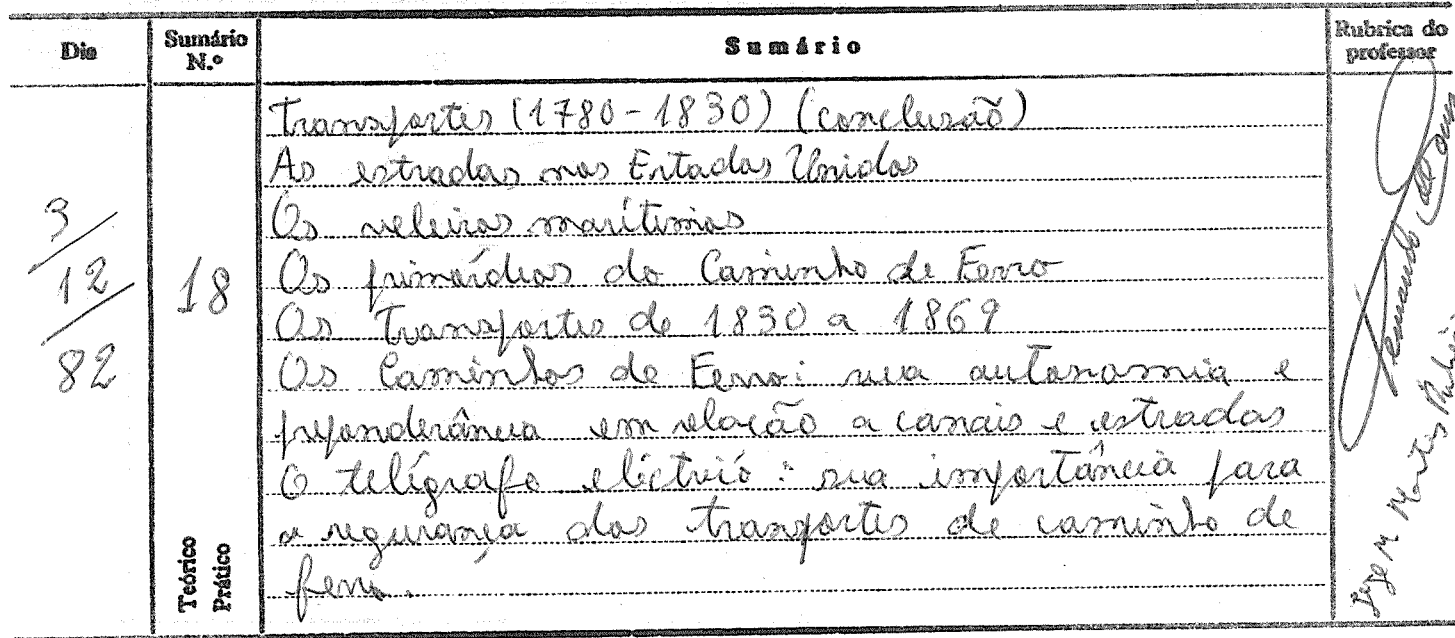 Dia
Sumário N.º
Sumário
Rubrica do professor
3/12/82
18
Teórico
Prático
Transportes (1780-1830) (conclusão)
As estradas nos Estados Unidos
Os veleiros marítimos
Os primórdios do Caminho de Ferro
Os Transportes de 1830 a 1869
Os Caminhos de Ferro: sua autonomia e
preponderância em relação a canais e estradas
O telégrafo eléctrico: sua importância para
a segurança dos transportes de caminho de
ferro.
Fernando de Sousa